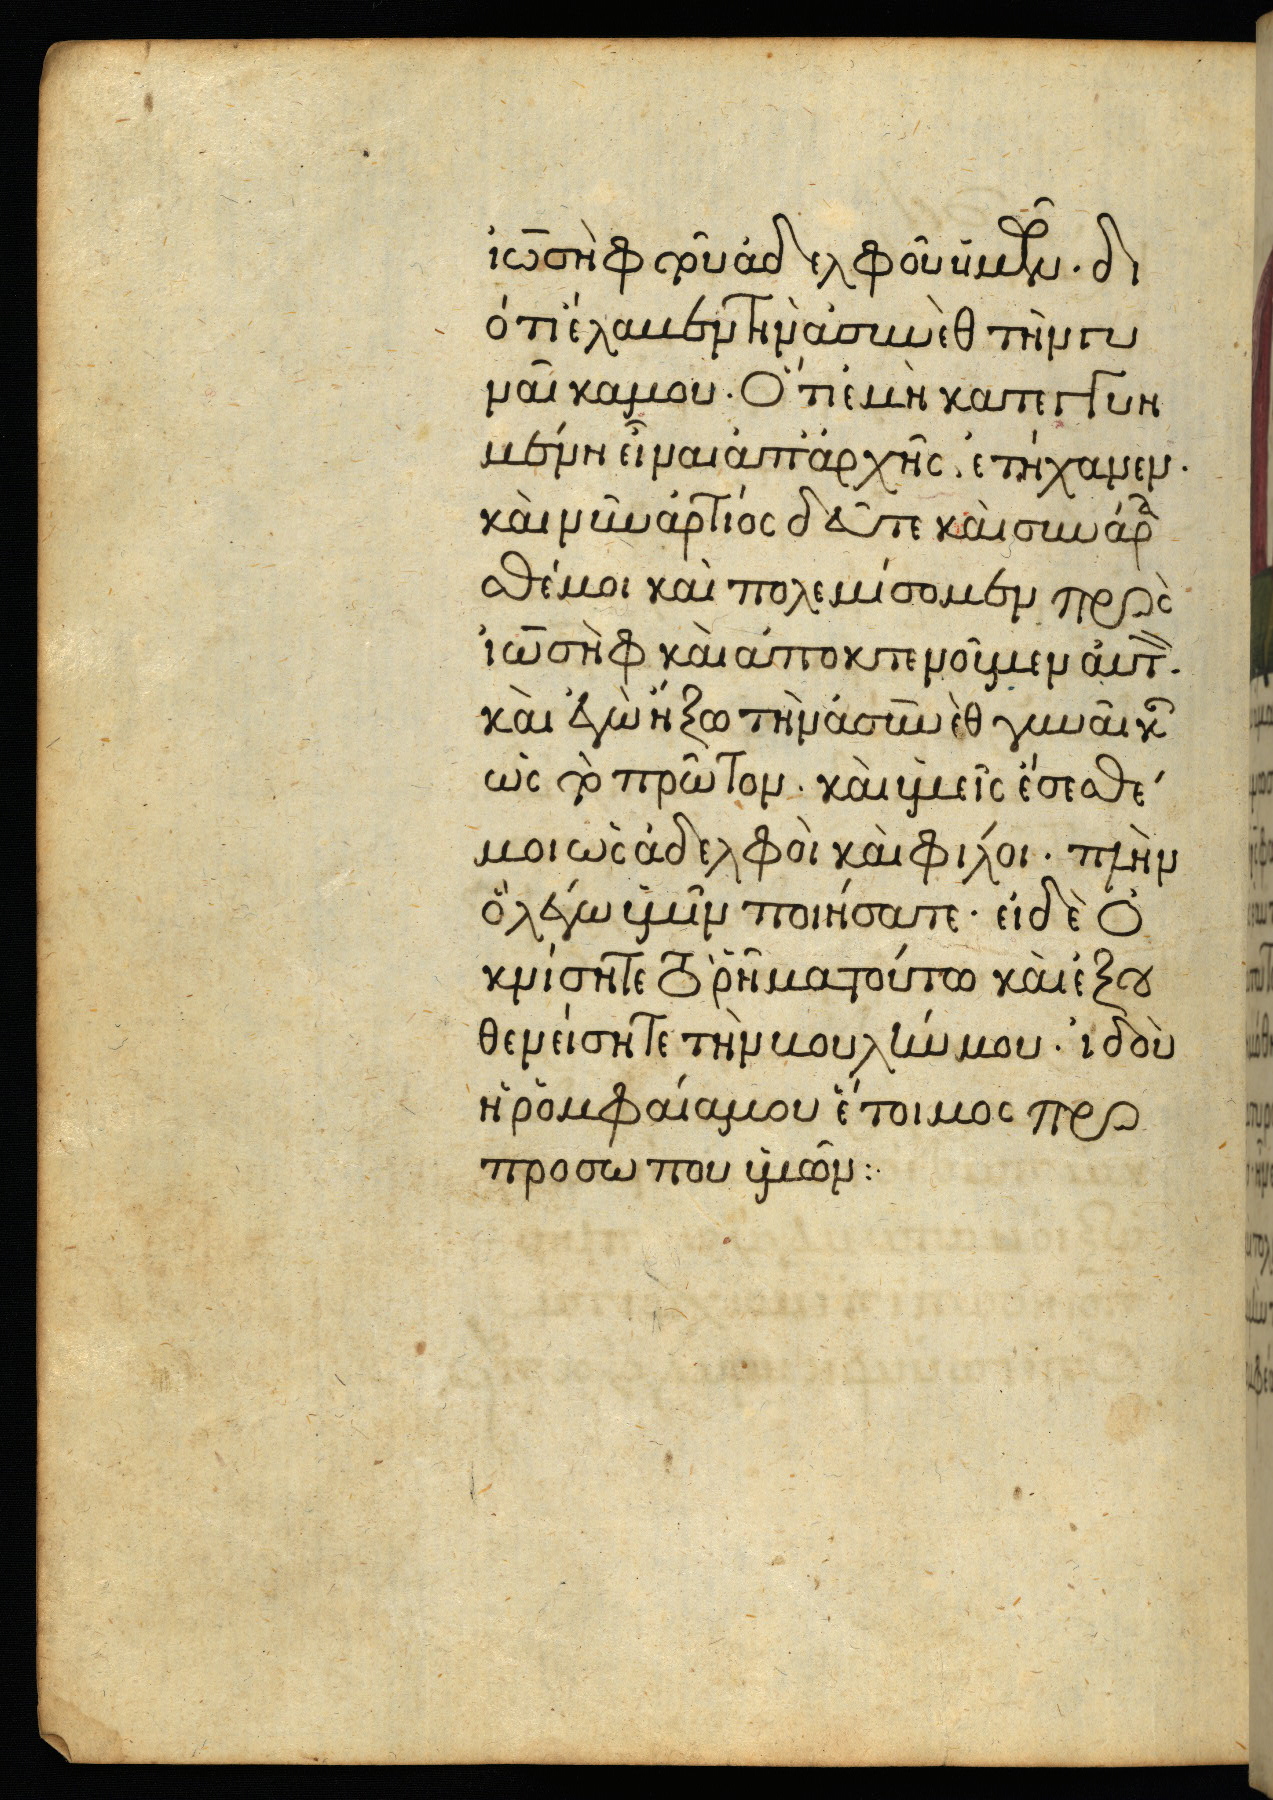 ἰωσὴφ τοῦ ἀδελφοῦ ὑμῶν · δι
ότι ἔλαμβεν τὴν ἀσυνὲθ τὴν γυ
ναῖκα μου · Ὅτι ἐμὴ κατεγγυη
μένη εἶναι ἀπ' ἀρχῆς . ἐτήχανεν ·
καὶ νῦν ἄρτιός δεῦτε καὶ συνάρα
σθέ μοι καὶ πολεμίσομεν πρὸς
ἰωσὴφ καὶ ἀποκτενοῦμεν αὐτ .
καὶ ἐγὼ ἥξω τὴν ἀσυνὲθ γυναῖκα
ὡς τὸ πρῶτον · καὶ ὑμεῖς ἔσεσθέ
μοι ὡς ἀδελφοὶ καὶ φιλοι · πλὴν
ὃ λέγω ὑμῖν ποιήσατε · εἰ δὲ ὀ
κνίσητε τὸ ῥῆμα τούτω καὶ ἐξου
θενείσητε τὴν κουλὴν μου · ἰδοὺ
ἡ ῥομφαία μου ἕτοιμος πρὸ
προσώπου ὑμῶν :·